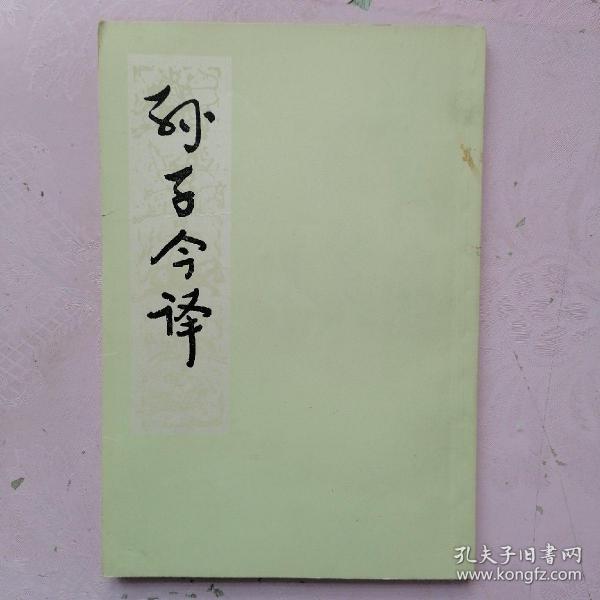 孙子今译
孔夫子旧書网
www.kongfz.com